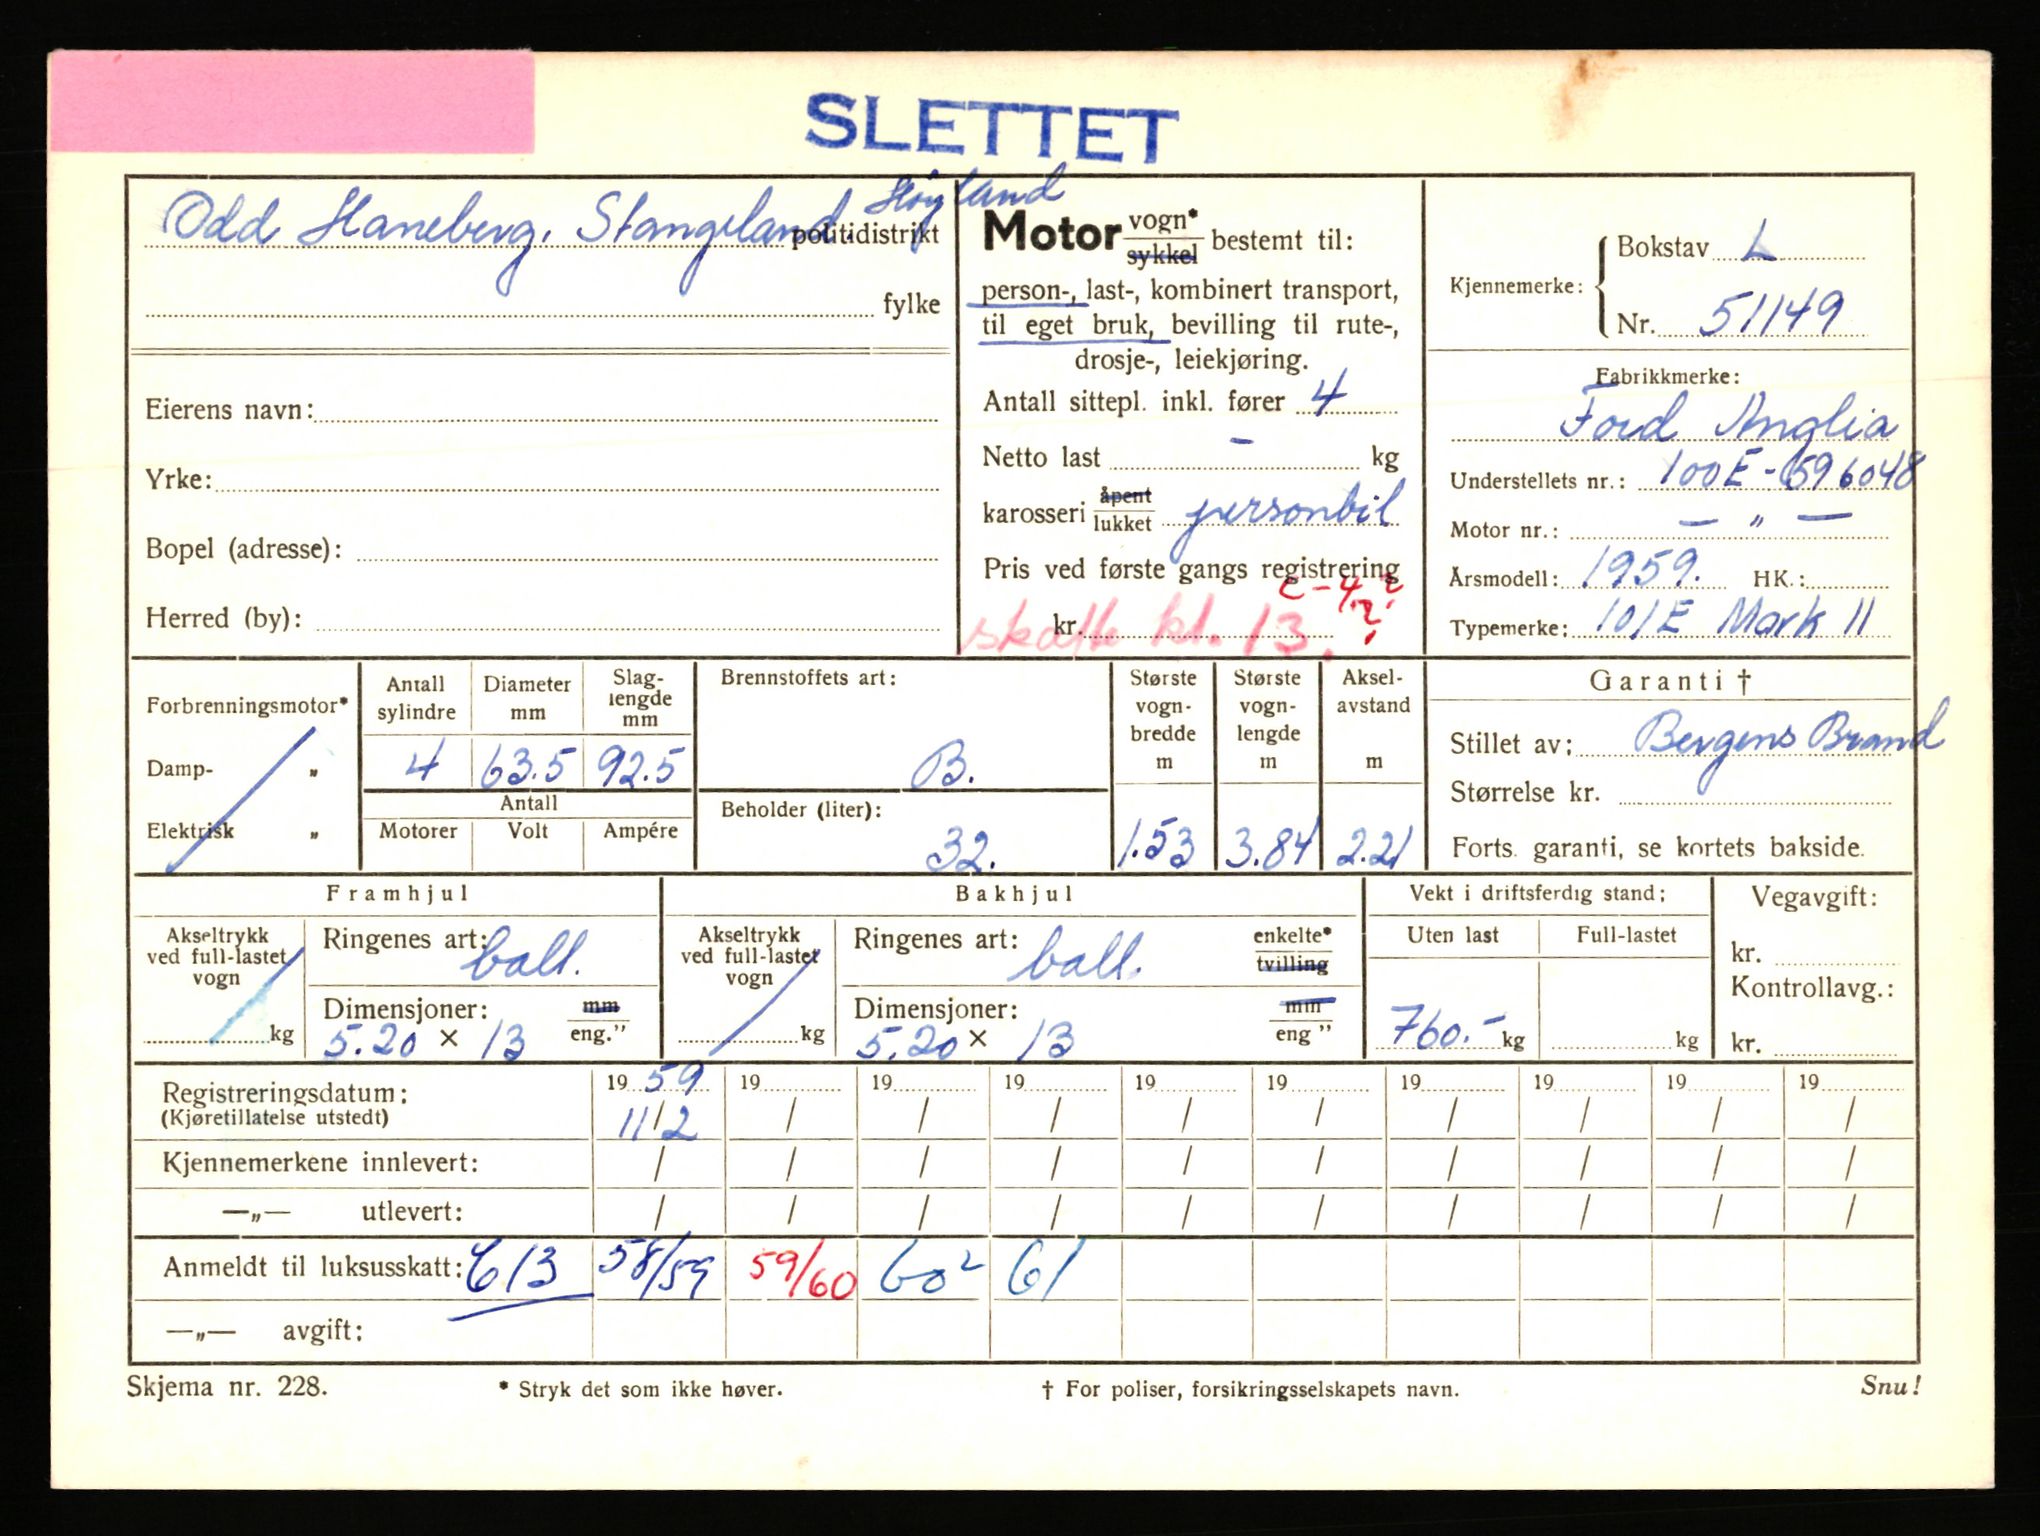 SLETTET
Odd Haneberg, Stangeland, Høyland politidistrikt
fylke
Eierens navn:
Yrke:
Bopel (adresse):
Herred (by):
Motor vogn* sykkel bestemt til:
person-, last-, kombinert transport,
til eget bruk, bevilling til rute-,
drosje-, leiekjøring.
Antall sittepl. inkl. fører 4
Netto last - kg
karosseri åpent lukket personbil
Pris ved første gangs registrering
kr. kl. 13.
Kjennemerke: Bokstav L
Nr. 51149
Fabrikkmerke:
Ford Anglia
Understellets nr.: 100E-596048
Motor nr.: — " —
Årsmodell: 1959. HK.:
Typemerke: 101E Mark II
Forbrenningsmotor*
Damp- „
Elektrisk „
Antall sylindre Diameter mm Slag-lengde mm
4 63.5 92.5
Antall
Motorer Volt Ampére
Brennstoffets art:
B.
Beholder (liter):
32.
Største vogn-bredde m
1.53
Største vogn-lengde m
3.84
Aksel-avstand m
2.21
Garanti †
Stillet av: Bergens Brand
Størrelse kr.
Forts. garanti, se kortets bakside.
Framhjul
Akseltrykk ved full-lastet vogn kg
Ringenes art: ball.
Dimensjoner: mm eng."
5.20 × 13
Bakhjul
Akseltrykk ved full-lastet vogn kg
Ringenes art: ball. enkelte* tvilling
Dimensjoner: mm eng "
5.20 × 13
Vekt i driftsferdig stand:
Uten last Full-lastet
760.- kg kg
Vegavgift:
kr.
Kontrollavg.:
kr.
Registreringsdatum: 19 59 19 19 19 19 19 19 19 19 19
(Kjøretillatelse utstedt) 11/2 / / / / / / / / /
Kjennemerkene innlevert: / / / / / / / / / /
—„— utlevert: / / / / / / / / / /
Anmeldt til luksusskatt: 613 58/59 59/60 60² 61
—„— avgift:
Skjema nr. 228. * Stryk det som ikke høver. † For poliser, forsikringsselskapets navn. Snu!